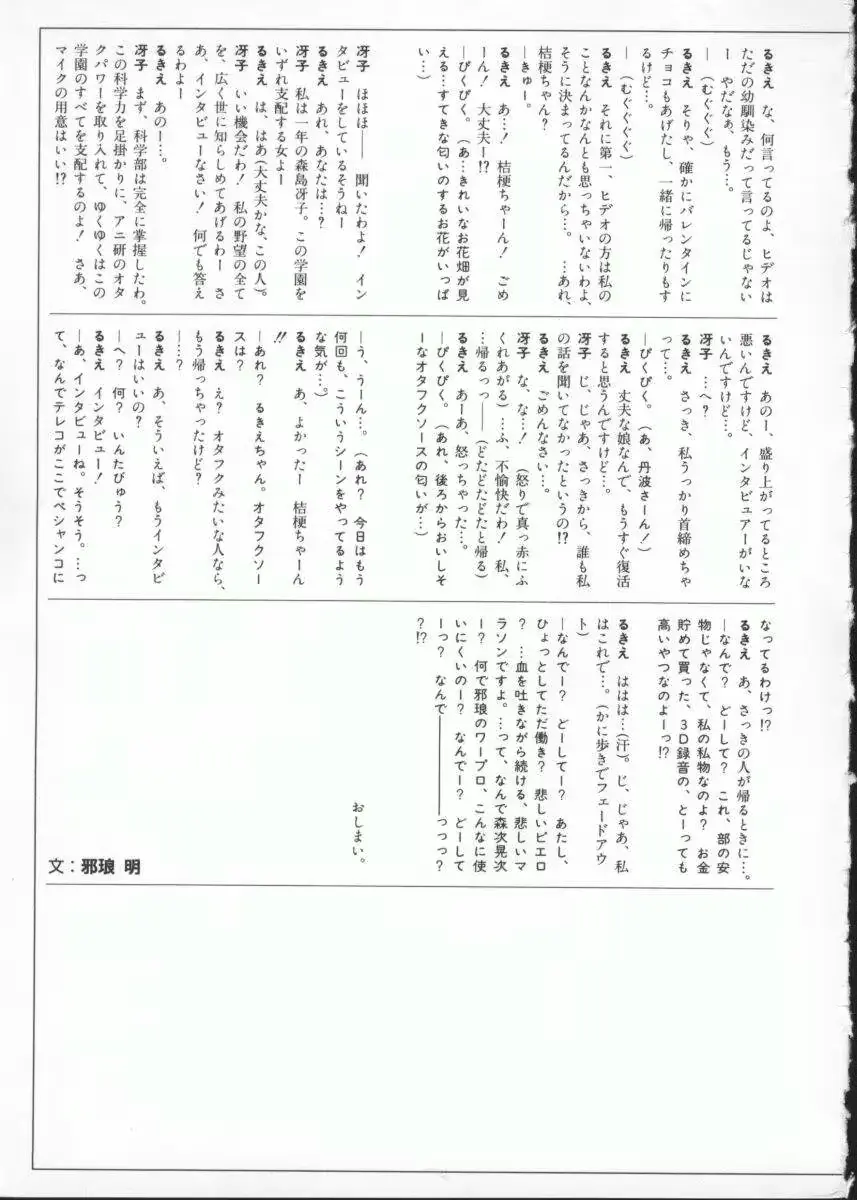 るきえ　な、何言ってるのよ、ヒデオは
ただの幼馴染みだって言ってるじゃない
ー　やだなぁ、もう…。
―（むぐぐぐ）
るきえ　そりゃ、確かにバレンタインに
チョコもあげたし、一緒に帰ったりもす
るけど…。
―（むぐぐぐぐ）
るきえ　それに第一、ヒデオの方は私の
ことなんかなんとも思っちゃいないわよ、
そうに決まってるんだから…。　…あれ、
桔梗ちゃん？
―きゅー。
るきえ　あ…！　桔梗ちゃーん！　ごめ
ーん！　大丈夫ー!?
―ぴくぴく。（あ…きれいなお花畑が見
える…すてきな匂いのするお花がいっぱ
い…）
冴子　ほほほ――　聞いたわよ！　イン
タビューをしているそうねー
るきえ　あれ、あなたは…？
冴子　私は一年の森島冴子。この学園を
いずれ支配する女よー
るきえ　は、はあ(大丈夫かな、この人)。
冴子　いい機会だわ！　私の野望の全て
を、広く世に知らしめてあげるわー　さ
あ、インタビューなさい！　何でも答え
るわよー
るきえ　あのー…。
冴子　まず、科学部は完全に掌握したわ。
この科学力を足掛かりに、アニ研のオタ
クパワーを取り入れて、ゆくゆくはこの
学園のすべてを支配するのよ！　さあ、
マイクの用意はいい!?
るきえ　あのー、盛り上がってるところ
悪いんですけど、インタビュアーがいな
いんですけど…。
冴子　…へ？
るきえ　さっき、私うっかり首締めちゃ
って…。
―ぴくぴく。（あ、丹波さーん！）
るきえ　丈夫な娘なんで、もうすぐ復活
すると思うんですけど…。
冴子　じ、じゃあ、さっきから、誰も私
の話を聞いてなかったというの!?
るきえ　ごめんなさい…。
冴子　な、な…！　（怒りで真っ赤にふ
くれあがる）…ふ、不愉快だわ！　私、
…帰るっっ――（どたどたどたと帰る）
るきえ　あーあ、怒っちゃった…。
―ぴくぴく。（あれ、後ろからおいしそ
ーなオタフクソースの匂いが…）
―う、うーん…。（あれ？　今日はもう
何回も、こういうシーンをやってるよう
な気が…。）
るきえ　あ、よかったー　桔梗ちゃーん
!!
―あれ？　るきえちゃん。オタフクソー
スは？
るきえ　え？　オタフクみたいな人なら、
もう帰っちゃったけど？
―…？
るきえ　あ、そういえば、もうインタビ
ューはいいの？
―へ？　何？　いんたびゅう？
るきえ　インタビュー！
―あ、インタビューね。そうそう。…っ
て、なんでテレコがここでペシャンコに
なってるわけっ!?
るきえ　あ、さっきの人が帰るときに…。
―なんで？　どーして？　これ、部の安
物じゃなくて、私の私物なのよ？　お金
貯めて買った、３Ｄ録音の、とーっても
高いやつなのよーっ!?
るきえ　ははは…(汗)。じ、じゃあ、私
はこれで…。（かに歩きでフェードアウ
ト）
―なんでー？　どーしてー？　あたし、
ひょっとしてただ働き？　悲しいピエロ
？　…血を吐きながら続ける、悲しいマ
ラソンですよ。…って、なんで森次晃次
ー？　何で邪琅のワープロ、こんなに使
いにくいのー？　なんでー？　どーして
ーっ？　なんで――――っっっ？
?!?
おしまい。
文：邪琅 明